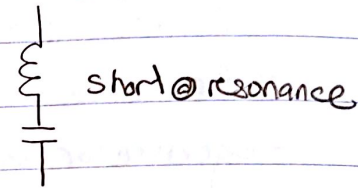 short @ resonance